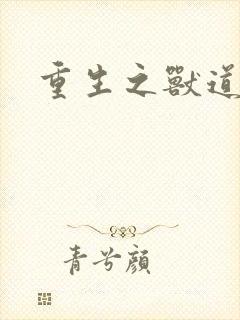 重生之獸道
青兮顏